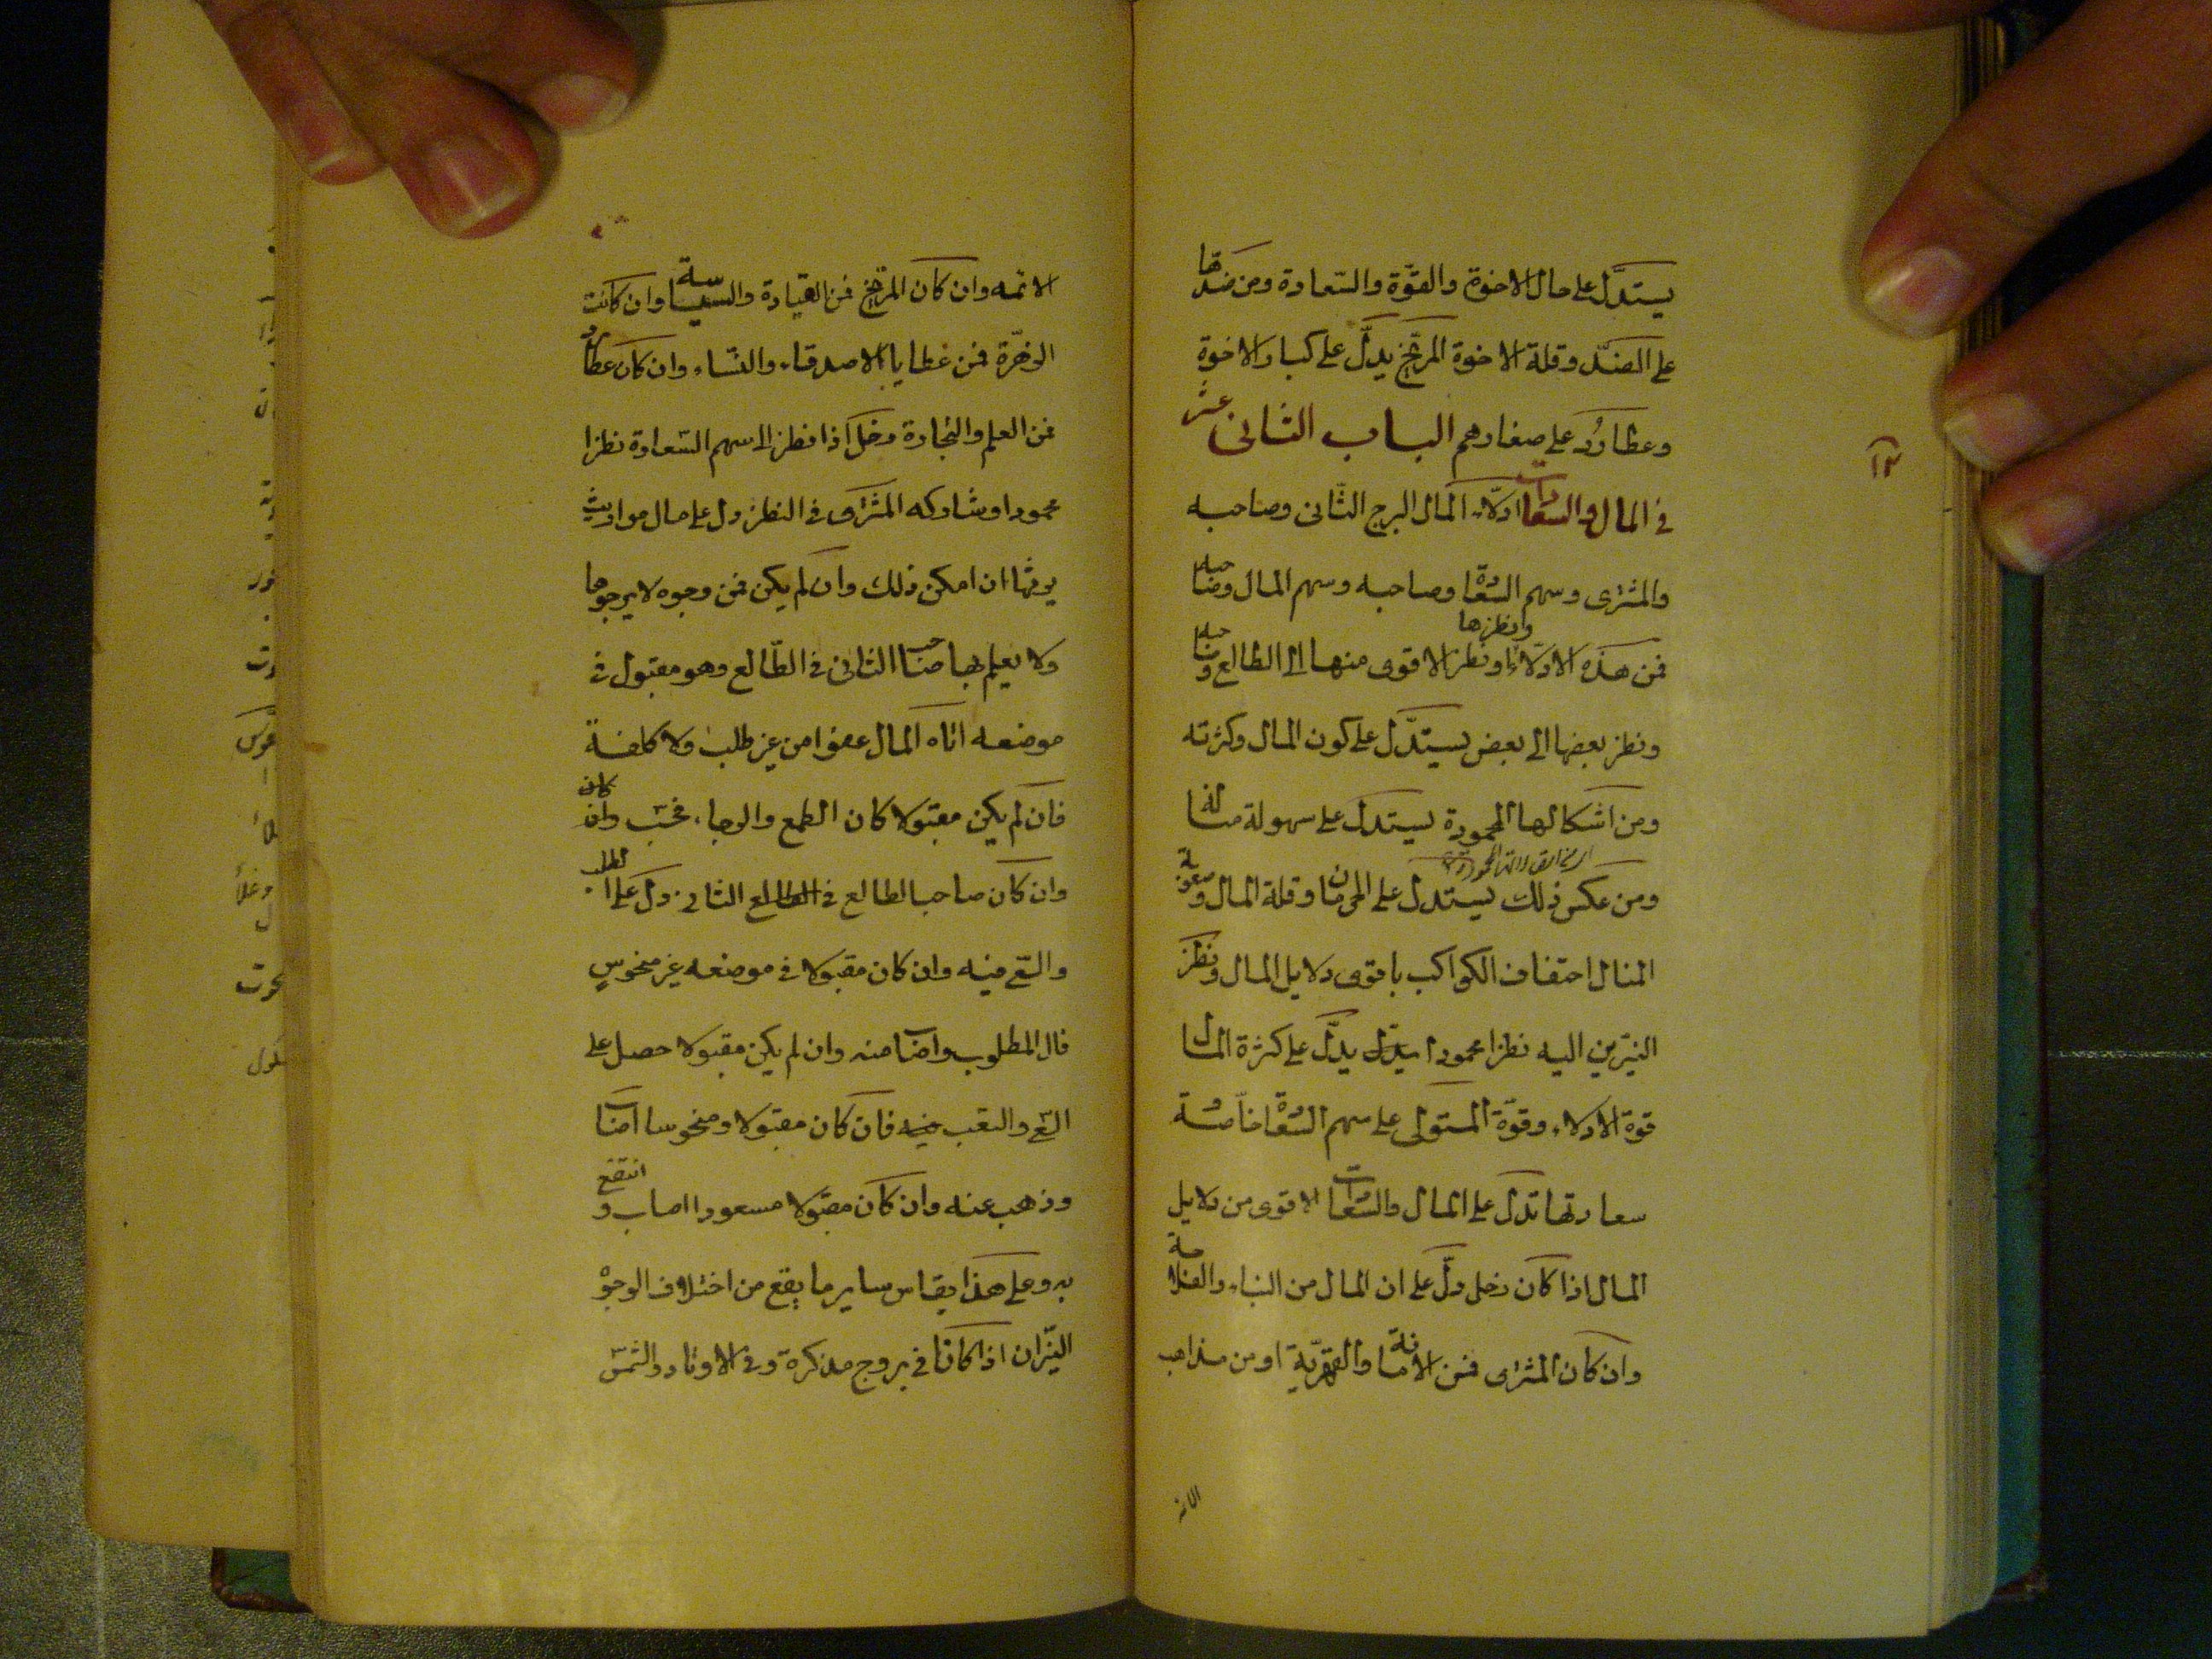 يستدل على حال الاخوة والقوّة والسّعادة ومن ضدّها
على الضدّ وقلة الاخوة المرّيخ يدلّ على كبار الاخوة
وعطارد على صغارهم الباب الثانى عشر
١٢
فى المال والسعادات ادلّاء المال البرج الثّانى وصاحبه
والمشترى وسهم السّعادة وصاحبه وسهم المال وصاحبه
فمن هذه الادلّاء وانظرها ونظر الاقوى منها الى الطالع وصاحبه
ونظر بعضها الى بعض يستدّل على كون المال وكثرته
ومن اشكالها المحمودة يستدل على سهولة مناله
ومن عكس ذلك يستدل على الحرمان وقلة المال وصعوبة
المنال احتفاف الكواكب باقوى دلايل المال ونظر
النيّرين اليه نظرا محمودا يدّل يدّل على كثرة المال
قوة الادلاء وقوّة المستولى على سهم السّعادة خاصّة
سعادتها تدل على المال والسّعادات الاقوى من دلايل
المال اذا كان زحل دلّ على ان المال من البناء والفلاحة
وان كان المشترى فمن الامانة والقهرمة او من مذاهب
الائمه
الائمه وان كان المرّيخ فمن القيادة والسياسة وان كانت
الزهرّة فمن عطايا الاصدقاء والنسّاء وان كان عطارد
فمن العلم والتجارة وزحل اذا نظر الى سهم السّعادة نظرا
محمودا وشاركه المشترى فى النظر دل على حال مواريث
يرثها ان امكن ذلك وان لم يكن فمن وجوه لا يرجوها
ولا يعلم بها صاحب الثانى فى الطّالع وهو مقبول فى
موضعه اتاه المال عفوا من غير طلب ولا كلفة
فان لم يكن مقبولا كان الطمع والرجاء فحسب وان كان
وان كان صاحب الطالع فى الطالع الثانى دل على الطلب
والسّعى فيه وان كان مقبولا فى موضعه غير منحوس
قال المطلوب واصاب منه وان لم يكن مقبولا حصل على
السّعى والتعب فيه فان كان مقبولا ومنحوسا اصاب
وذهب عنه وان كان مقبولا مسعودا اصاب وانتفع
به وعلى هذا يقاس ساير ما يقع من اختلاف الوجوه
النيّران اذا كانا فى بروج مذكرة وفى الاوتاد والشمس